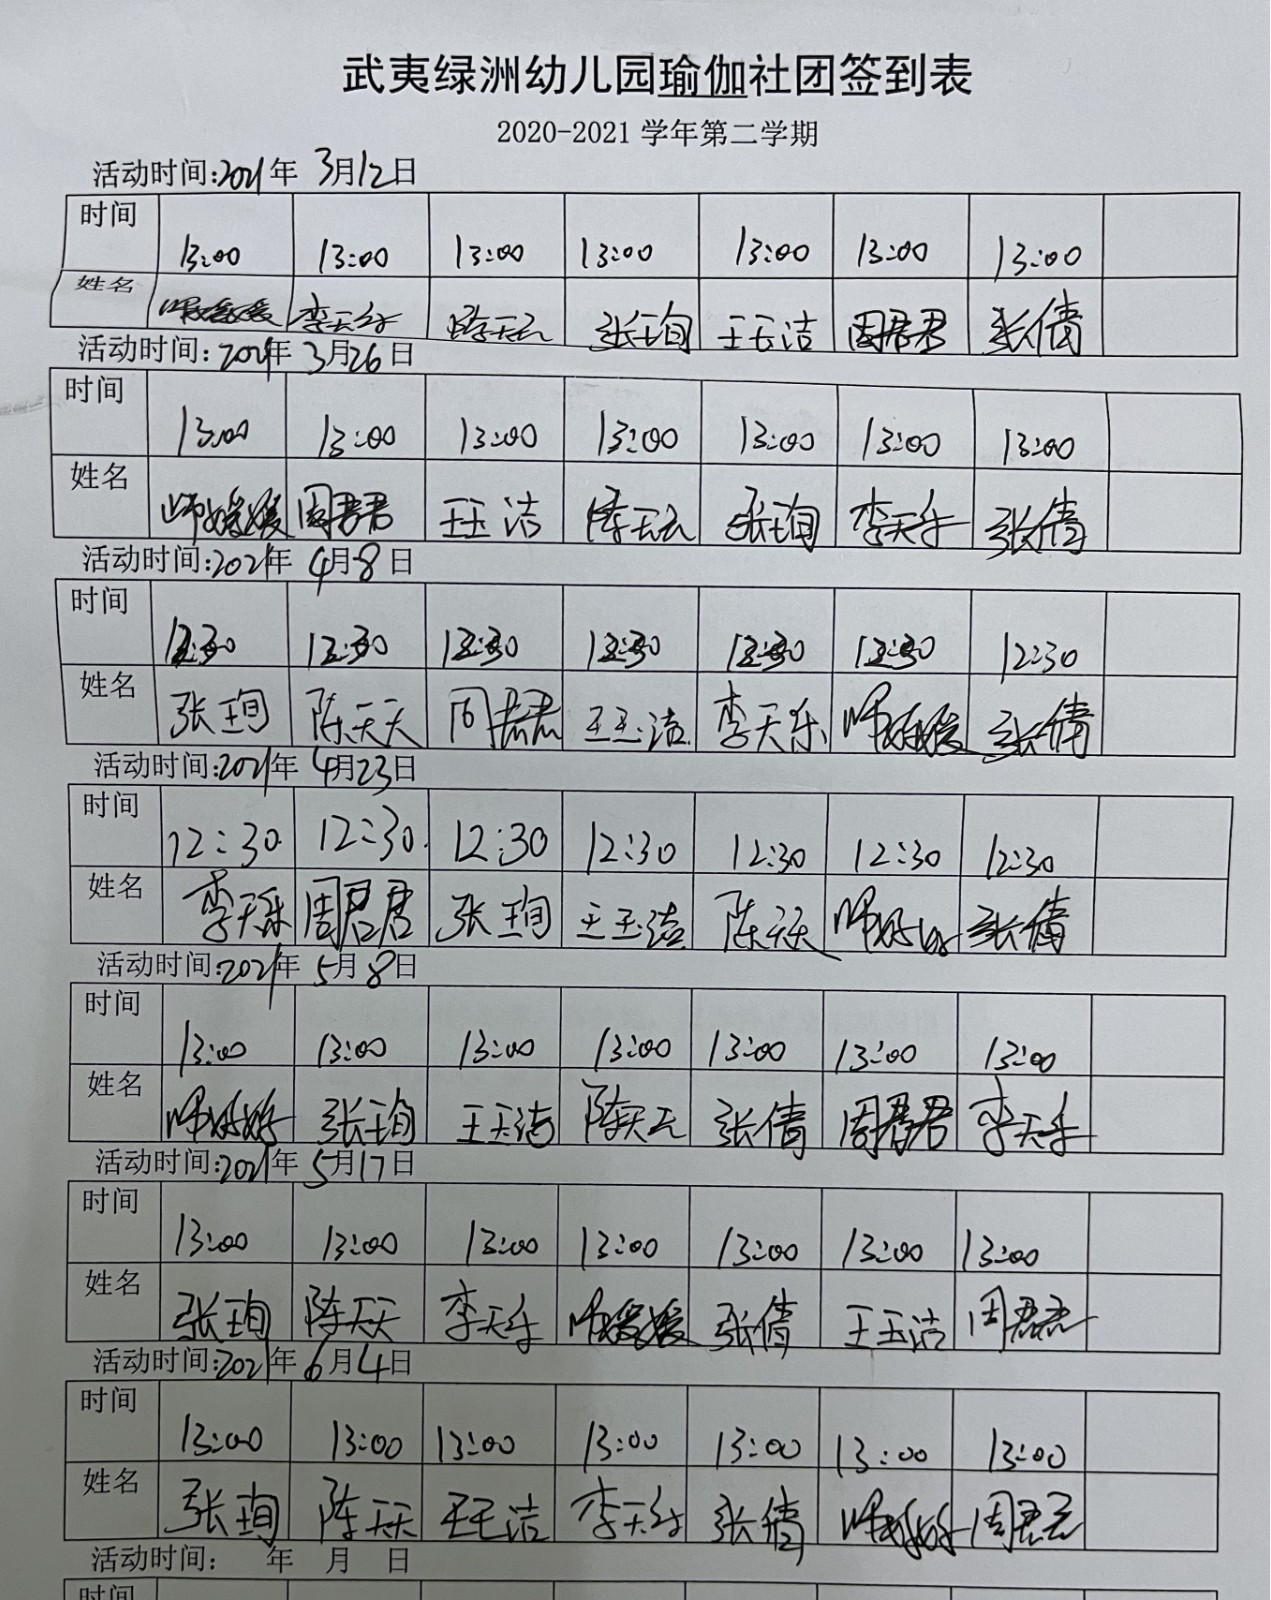 武夷绿洲幼儿园瑜伽社团签到表
2020-2021 学年第二学期
活动时间:2021年 3月12日
时间 13:00 13:00 13:00 13:00 13:00 13:00 13:00
姓名 李天乐 陈天天 张珣 王玉洁 周君君 张倩
活动时间:2021年 3月26日
时间 13:00 13:00 13:00 13:00 13:00 13:00 13:00
姓名 周君君 王玉洁 陈天天 张珣 李天乐 张倩
活动时间:2021年 4月8日
时间 12:30 12:30 12:30 12:30 12:30 12:30 12:30
姓名 张珣 陈天天 周君君 王玉洁 李天乐 张倩
活动时间:2021年 4月23日
时间 12:30 12:30 12:30 12:30 12:30 12:30 12:30
姓名 李天乐 周君君 张珣 王玉洁 陈天天 张倩
活动时间:2021年 5月8日
时间 13:00 13:00 13:00 13:00 13:00 13:00 13:00
姓名 张珣 王玉洁 陈天天 张倩 周君君 李天乐
活动时间:2021年 5月17日
时间 13:00 13:00 13:00 13:00 13:00 13:00 13:00
姓名 张珣 陈天天 李天乐 张倩 王玉洁 周君君
活动时间:2021年 6月4日
时间 13:00 13:00 13:00 13:00 13:00 13:00 13:00
姓名 张珣 陈天天 王玉洁 李天乐 张倩 周君君
活动时间: 年 月 日
时间